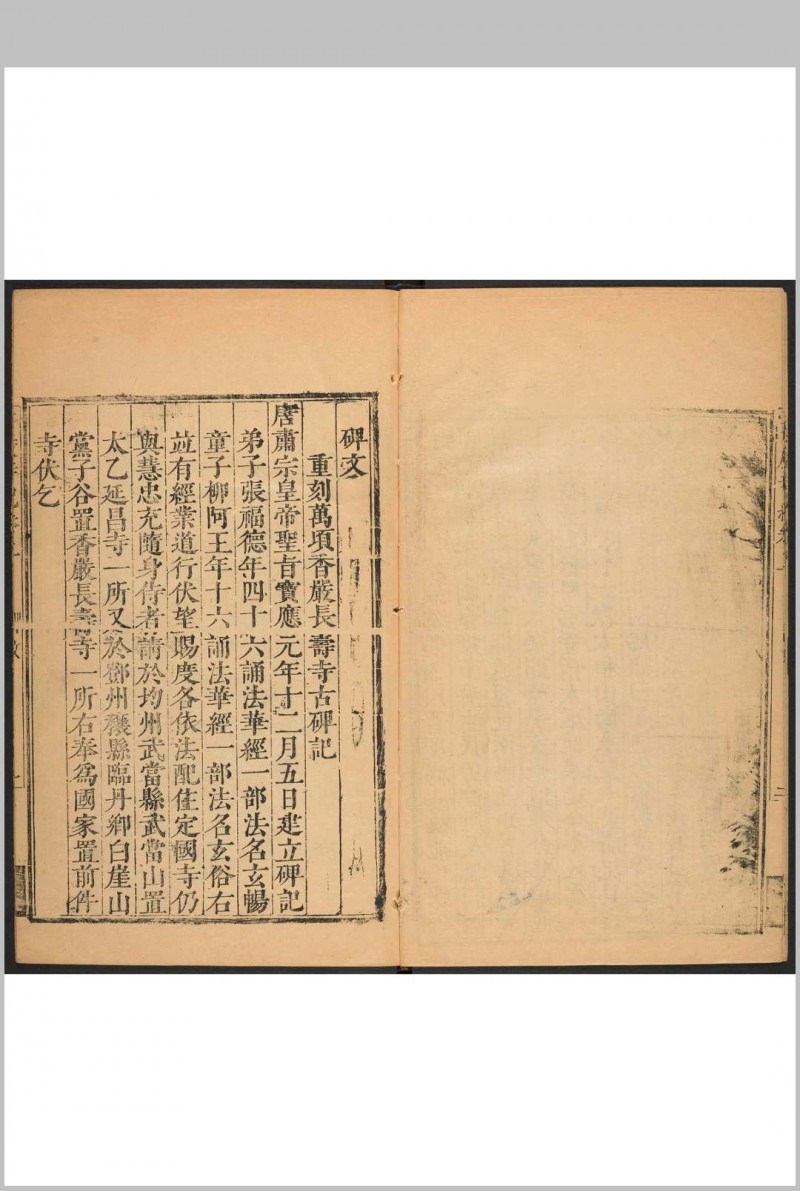 碑文
重刻萬項香嚴長壽寺古碑記
唐肅宗皇帝聖旨寶應元年十二月五日建立碑記
弟子張福德年四十六誦法華經一部法名玄暢
童子柳阿王年十六誦法華經一部法名玄俗右
並有經業道行伏望賜度各依法配住定國寺仍
與慧忠充隨身侍者請於均州武當縣武當山置
太乙延昌寺一所又於鄧州穰縣臨丹鄉白崖山
黨子谷置香嚴長壽寺一所右奉爲國家置前件
寺伏乞